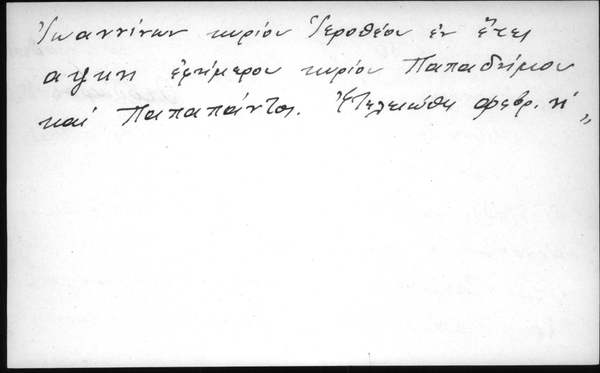 Ἰωαννίνων κυρίου Ἱεροθέου ἐν ἔτει
αψκη ἐφημέρου κυρίου Παπαδήμου
καί Παπαπάντου. Ἐτελειώθη φεβρ. η΄ „